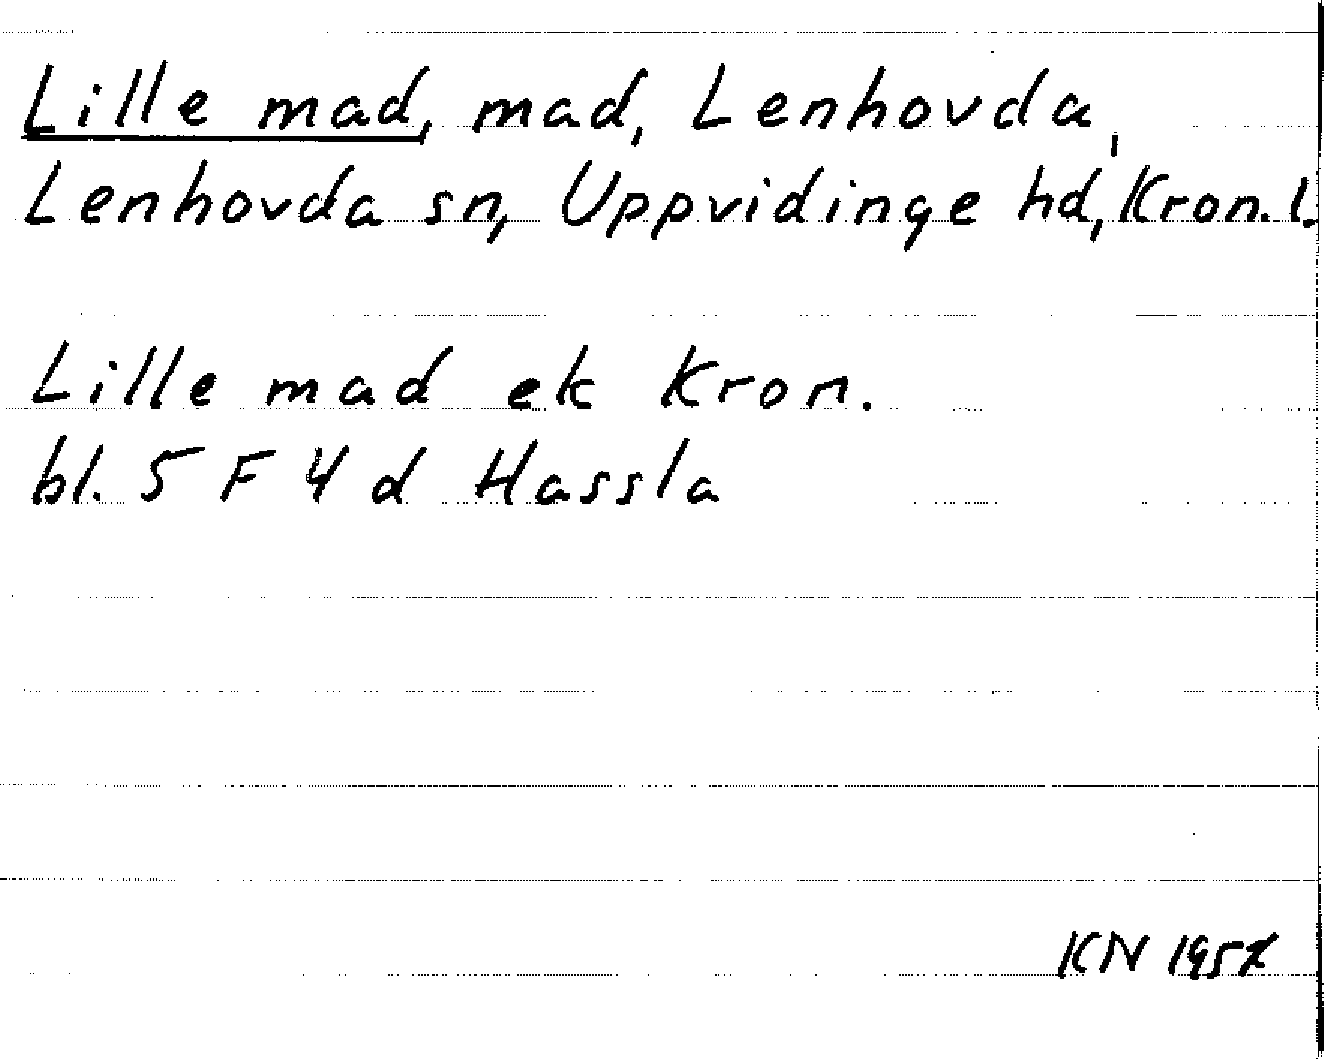 Lille mad, mad, Lenhovda,
Lenhovda sn, Uppvidinge hd, Kron. l.
Lille mad ek Kron.
bl. 5 F 4 d Hassla
KN